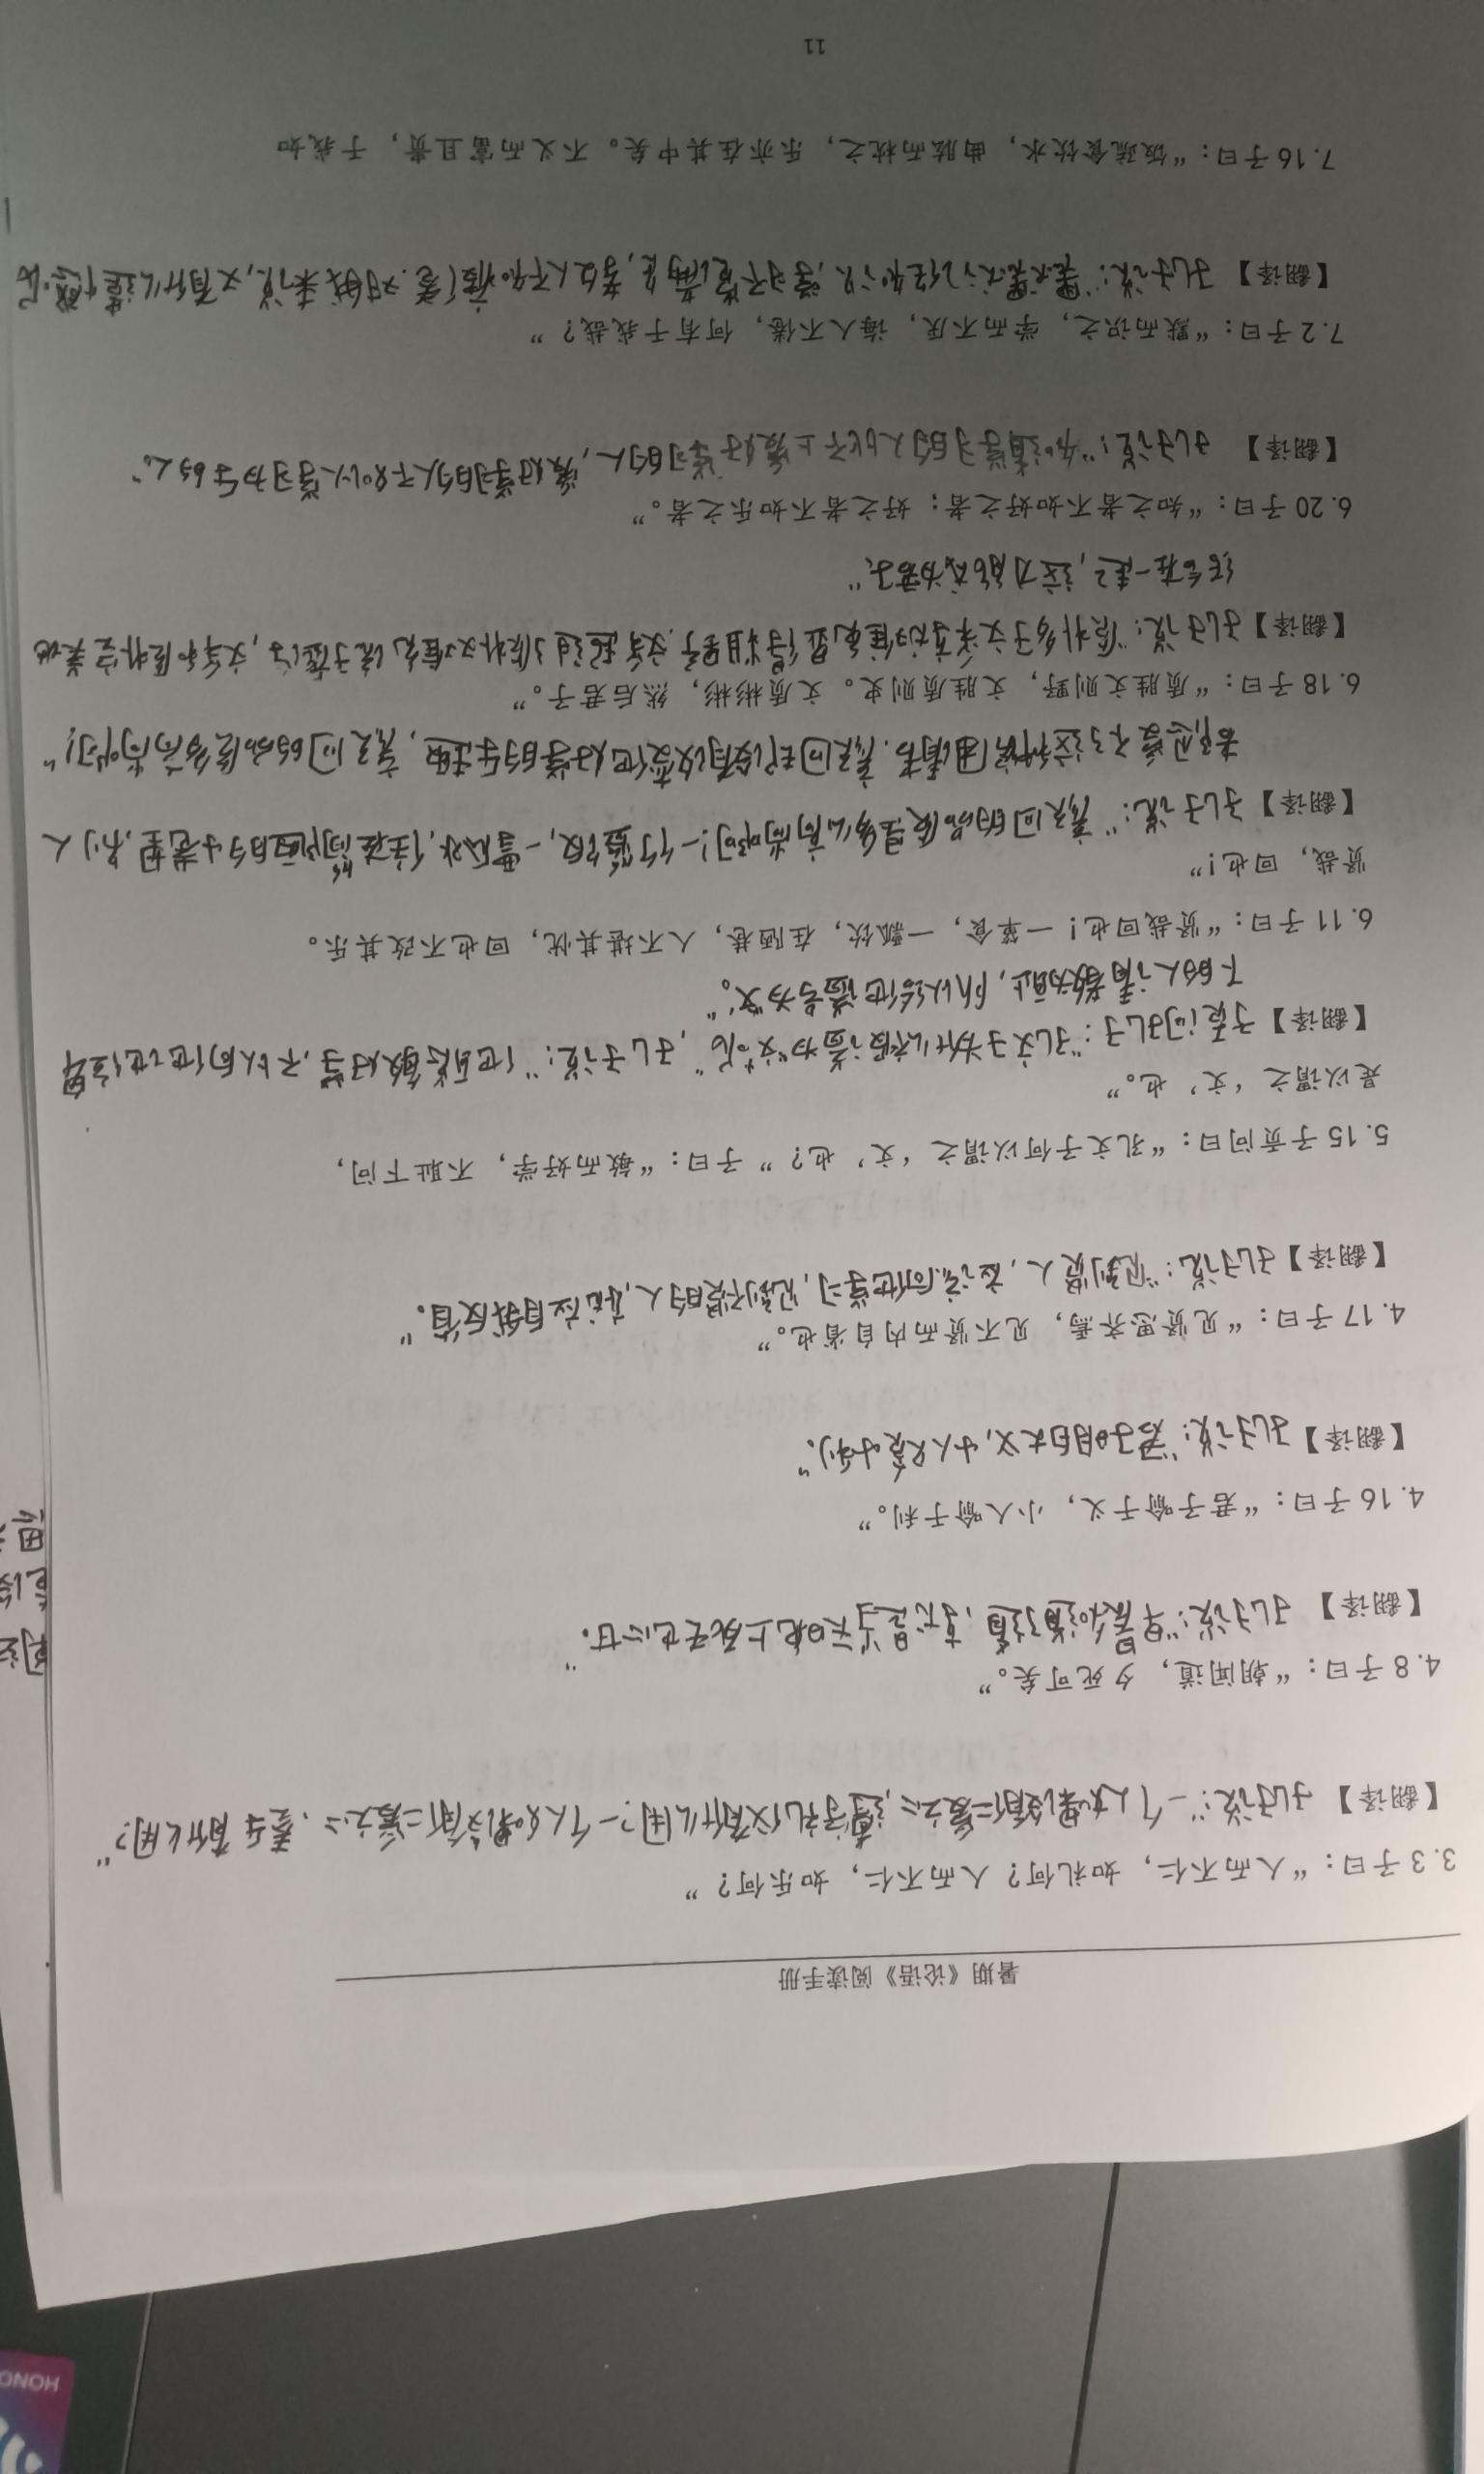 暑期《论语》阅读手册
3.3 子曰：“人而不仁，如礼何？人而不仁，如乐何？”
【翻译】孔子说：“一个人如果没有仁爱之心，遵守礼仪有什么用？一个人如果没有仁爱之心，奏乐有什么用？”
4.8 子曰：“朝闻道，夕死可矣。”
【翻译】孔子说：“早晨知道道，就是当天晚上死去也心甘。”
4.16 子曰：“君子喻于义，小人喻于利。”
【翻译】孔子说：“君子明白大义，小人只贪小利。”
4.17 子曰：“见贤思齐焉，见不贤而内自省也。”
【翻译】孔子说：“见到贤人，应该向他学习，见到不贤的人，就应自我反省。”
5.15 子贡问曰：“孔文子何以谓之‘文’也？”子曰：“敏而好学，不耻下问，
是以谓之‘文’也。”
【翻译】子贡问孔子：“孔文子为什么被谥为“文”呢”，孔子说：“他聪敏好学，不以向他地位卑
下的人请教为耻，所以给他谥号为“文”。”
6.11 子曰：“贤哉回也！一箪食，一瓢饮，在陋巷，人不堪其忧，回也不改其乐。
贤哉，回也！”
【翻译】孔子说：“颜回的品质是多么高尚啊！一个箪饭，一瓢水，住在简陋的小巷里，别人
都忍受不了这种困清苦，颜回却没有改变他好学的乐趣，颜回的品质多高尚啊！”
6.18 子曰：“质胜文则野，文胜质则史。文质彬彬，然后君子。”
【翻译】孔子说：“质朴多于文采就难免显得粗野，文采超过了质朴又难免流于虚浮，文采和质朴完美地
结合在一起，这才能成为君子。”
6.20 子曰：“知之者不如好之者；好之者不如乐之者。”
【翻译】孔子说：“知道学习的人比不上爱好学习的人，爱好学习的人不如以学习为乐的人。”
7.2 子曰：“默而识之，学而不厌，诲人不倦，何有于我哉？”
【翻译】孔子说：“默默记住知识，学习不觉满足，教人不知疲倦，对我来说，又有什么遗憾呢
7.16 子曰：“饭疏食饮水，曲肱而枕之，乐亦在其中矣。不义而富且贵，于我如
11
HONO